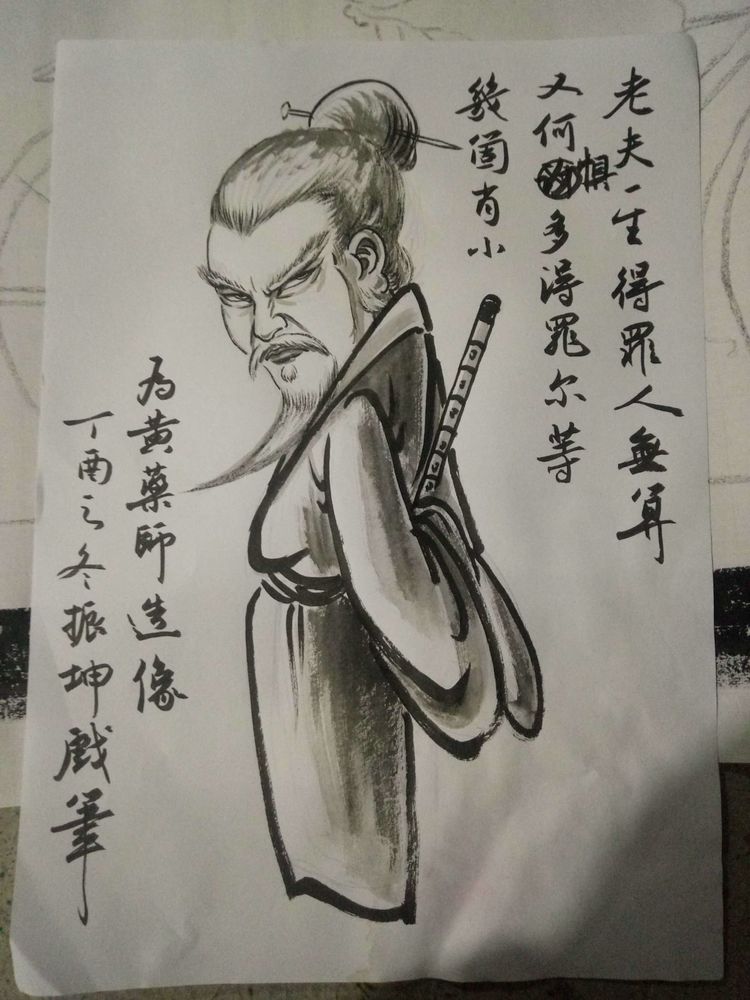 老夫一生得罪人無算
又何惧多得罪尔等
幾箇肖小
为黄藥師造像
丁酉之冬振坤戲筆